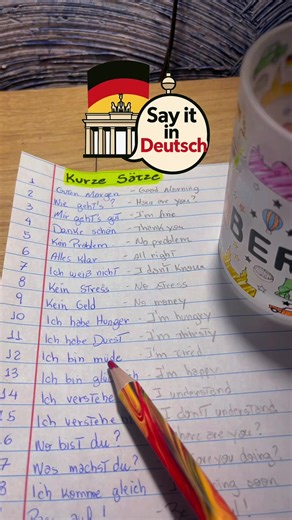 Say it
in
Deutsch
BER
Kurze Sätze
1 Guten Morgen - Good Morning
2 Wie geht's? - How are you?
3 Mir geht's gut - I'm fine
4 Danke schön - Thank you
5 Kein Problem - No problem
6 Alles klar - All right
7 Ich weiß nicht - I don't know
8 Kein Stress - No stress
9 Kein Geld - No money
10 Ich habe Hunger - I'm hungry
11 Ich habe Durst - I'm thirsty
12 Ich bin müde - I'm tired
13 Ich bin - I'm happy
14 Ich verstehe - I understand
15 Ich verstehe I don't understand
6 Wo bist du? are you?
7 Was machst du? are you doing?
8 Ich komme gleich soon